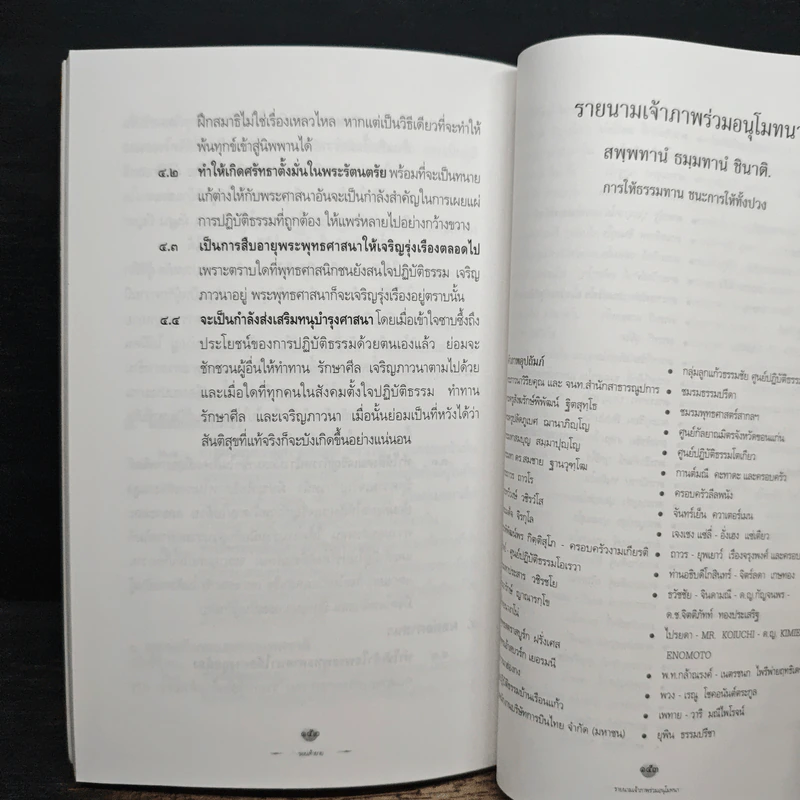 ฝึกสมาธิไม่ใช่เรื่องเหลวไหล หากแต่เป็นวิธีเดียวที่จะทำให้
พ้นทุกข์เข้าสู่นิพพานได้
๔.๒ ทำให้เกิดศรัทธาตั้งมั่นในพระรัตนตรัย พร้อมที่จะเป็นทนาย
แก้ต่างให้กับพระศาสนาอันจะเป็นกำลังสำคัญในการเผยแผ่
การปฏิบัติธรรมที่ถูกต้อง ให้แพร่หลายไปอย่างกว้างขวาง
๔.๓ เป็นการสืบอายุพระพุทธศาสนาให้เจริญรุ่งเรืองตลอดไป
เพราะตราบใดที่พุทธศาสนิกชนยังสนใจปฏิบัติธรรม เจริญ
ภาวนาอยู่ พระพุทธศาสนาก็จะเจริญรุ่งเรืองอยู่ตราบนั้น
๔.๔ จะเป็นกำลังส่งเสริมทนุบำรุงศาสนา โดยเมื่อเข้าใจซาบซึ้งถึง
ประโยชน์ของการปฏิบัติธรรมด้วยตนเองแล้ว ย่อมจะ
ชักชวนผู้อื่นให้ทำทาน รักษาศีล เจริญภาวนาตามไปด้วย
และเมื่อใดที่ทุกคนในสังคมตั้งใจปฏิบัติธรรม ทำทาน
รักษาศีล และเจริญภาวนา เมื่อนั้นย่อมเป็นที่หวังได้ว่า
สันติสุขที่แท้จริงก็จะบังเกิดขึ้นอย่างแน่นอน
รายนามเจ้าภาพร่วมอนุโมทนา
สพฺพทานํ ธมฺมทานํ ชินาติ.
การให้ธรรมทาน ชนะการให้ทั้งปวง
กิตฺติสุโภ - ครอบครัวงามเกียรติ
ศูนย์ปฏิบัติธรรมโอเรวา
ฝรั่งเศส
เยอรมนี
จำกัด (มหาชน)
• กลุ่มลูกแก้วธรรมชัย ศูนย์ปฏิบัติธรรม
• ชมรมธรรมปรีดา
• ชมรมพุทธศาสตร์สากลฯ
• ศูนย์กัลยาณมิตรจังหวัดขอนแก่น
• ศูนย์ปฏิบัติธรรมโตเกียว
• กานต์มณี คะทาดะ และครอบครัว
• ครอบครัวลีลพนัง
• จันทร์เย็น ควาเตอร์แมน
• เจงเชง แซ่ลี้ - อั่งเฮง แซ่เตียว
• ถาวร - ยุพเยาว์ เรืองจรุงพงศ์ และครอบ
• ท่านอธิบดีโกสินทร์ - จิตร์ลดา เกษทอง
• ธวัชชัย - จินดามณี - ด.ญ.กัญจนพร -
ด.ช.จิตติภัทท์ ทองประเสริฐ
• ไปรยดา - MR. KOIUCHI - ด.ญ. KIMIE
ENOMOTO
• พ.ท.กล้าณรงค์ - เนตรชนก
• พวง - เรณู โชคอนันต์ตระกูล
• เพทาย - วารี มณีไพโรจน์
• ยุพิน ธรรมปรีชา
รายนามเจ้าภาพร่วมอนุโมทนา